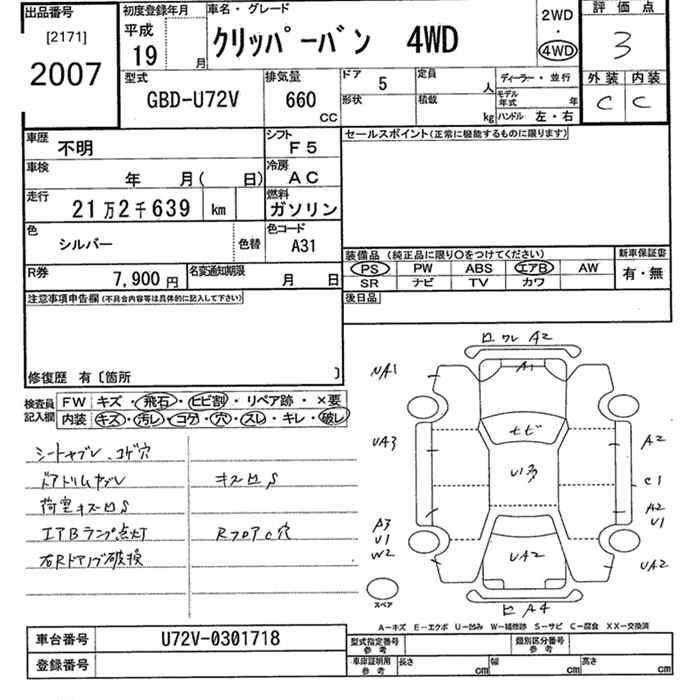 出品番号
[2171]
2007
初度登録年月
平成
19
月
車名・グレード
クリッパーバン 4WD
2WD
・
4WD
評価点
3
外装 内装
C C
型式
GBD-U72V
排気量
660
CC
ドア
5
定員
人
形状
積載
kg
ディーラー・並行
モデル年式
年
ハンドル 左・右
車歴
不明
シフト
F5
セールスポイント(正常に機能するものに限ります)
車検
年 月( 日)
冷房
AC
走行
21万2千639
km
燃料
ガソリン
色
シルバー
色替
色コード
A31
装備品 (純正品に限り○をつけてください)
PS PW ABS エアB AW
SR ナビ TV カワ
新車保証書
有・無
R券
7,900 円
名変通知期限
月 日
後日品
注意事項申告欄(不具合内容等は具体的に記入して下さい)
修復歴 有〔箇所 〕
検査員記入欄
FW キズ・飛石・ヒビ割・リペア跡・×要
内装 キズ・汚レ・コゲ・穴・スレ・キレ・破レ
シートヤブレ、コゲ穴
ドアトリムヤブレ
キズロS
荷室キズロS
エアBランプ点灯
RフロアC穴
右Rドアノブ破損
ロ ワレ A2
A1
UA1
ヒビ
UA3
A2
U多
C1
A2
U1
A3
U1
W2
UA2
UA2
ヒ A4
スペア
A−キズ E−エクボ U−凹み W−補修跡 S−サビ C−腐食 XX−交換済
車台番号
U72V-0301718
登録番号
型式指定番号
参考
類別区分番号
参考
車庫証明用
参考
長さ
cm
幅
cm
高さ
cm